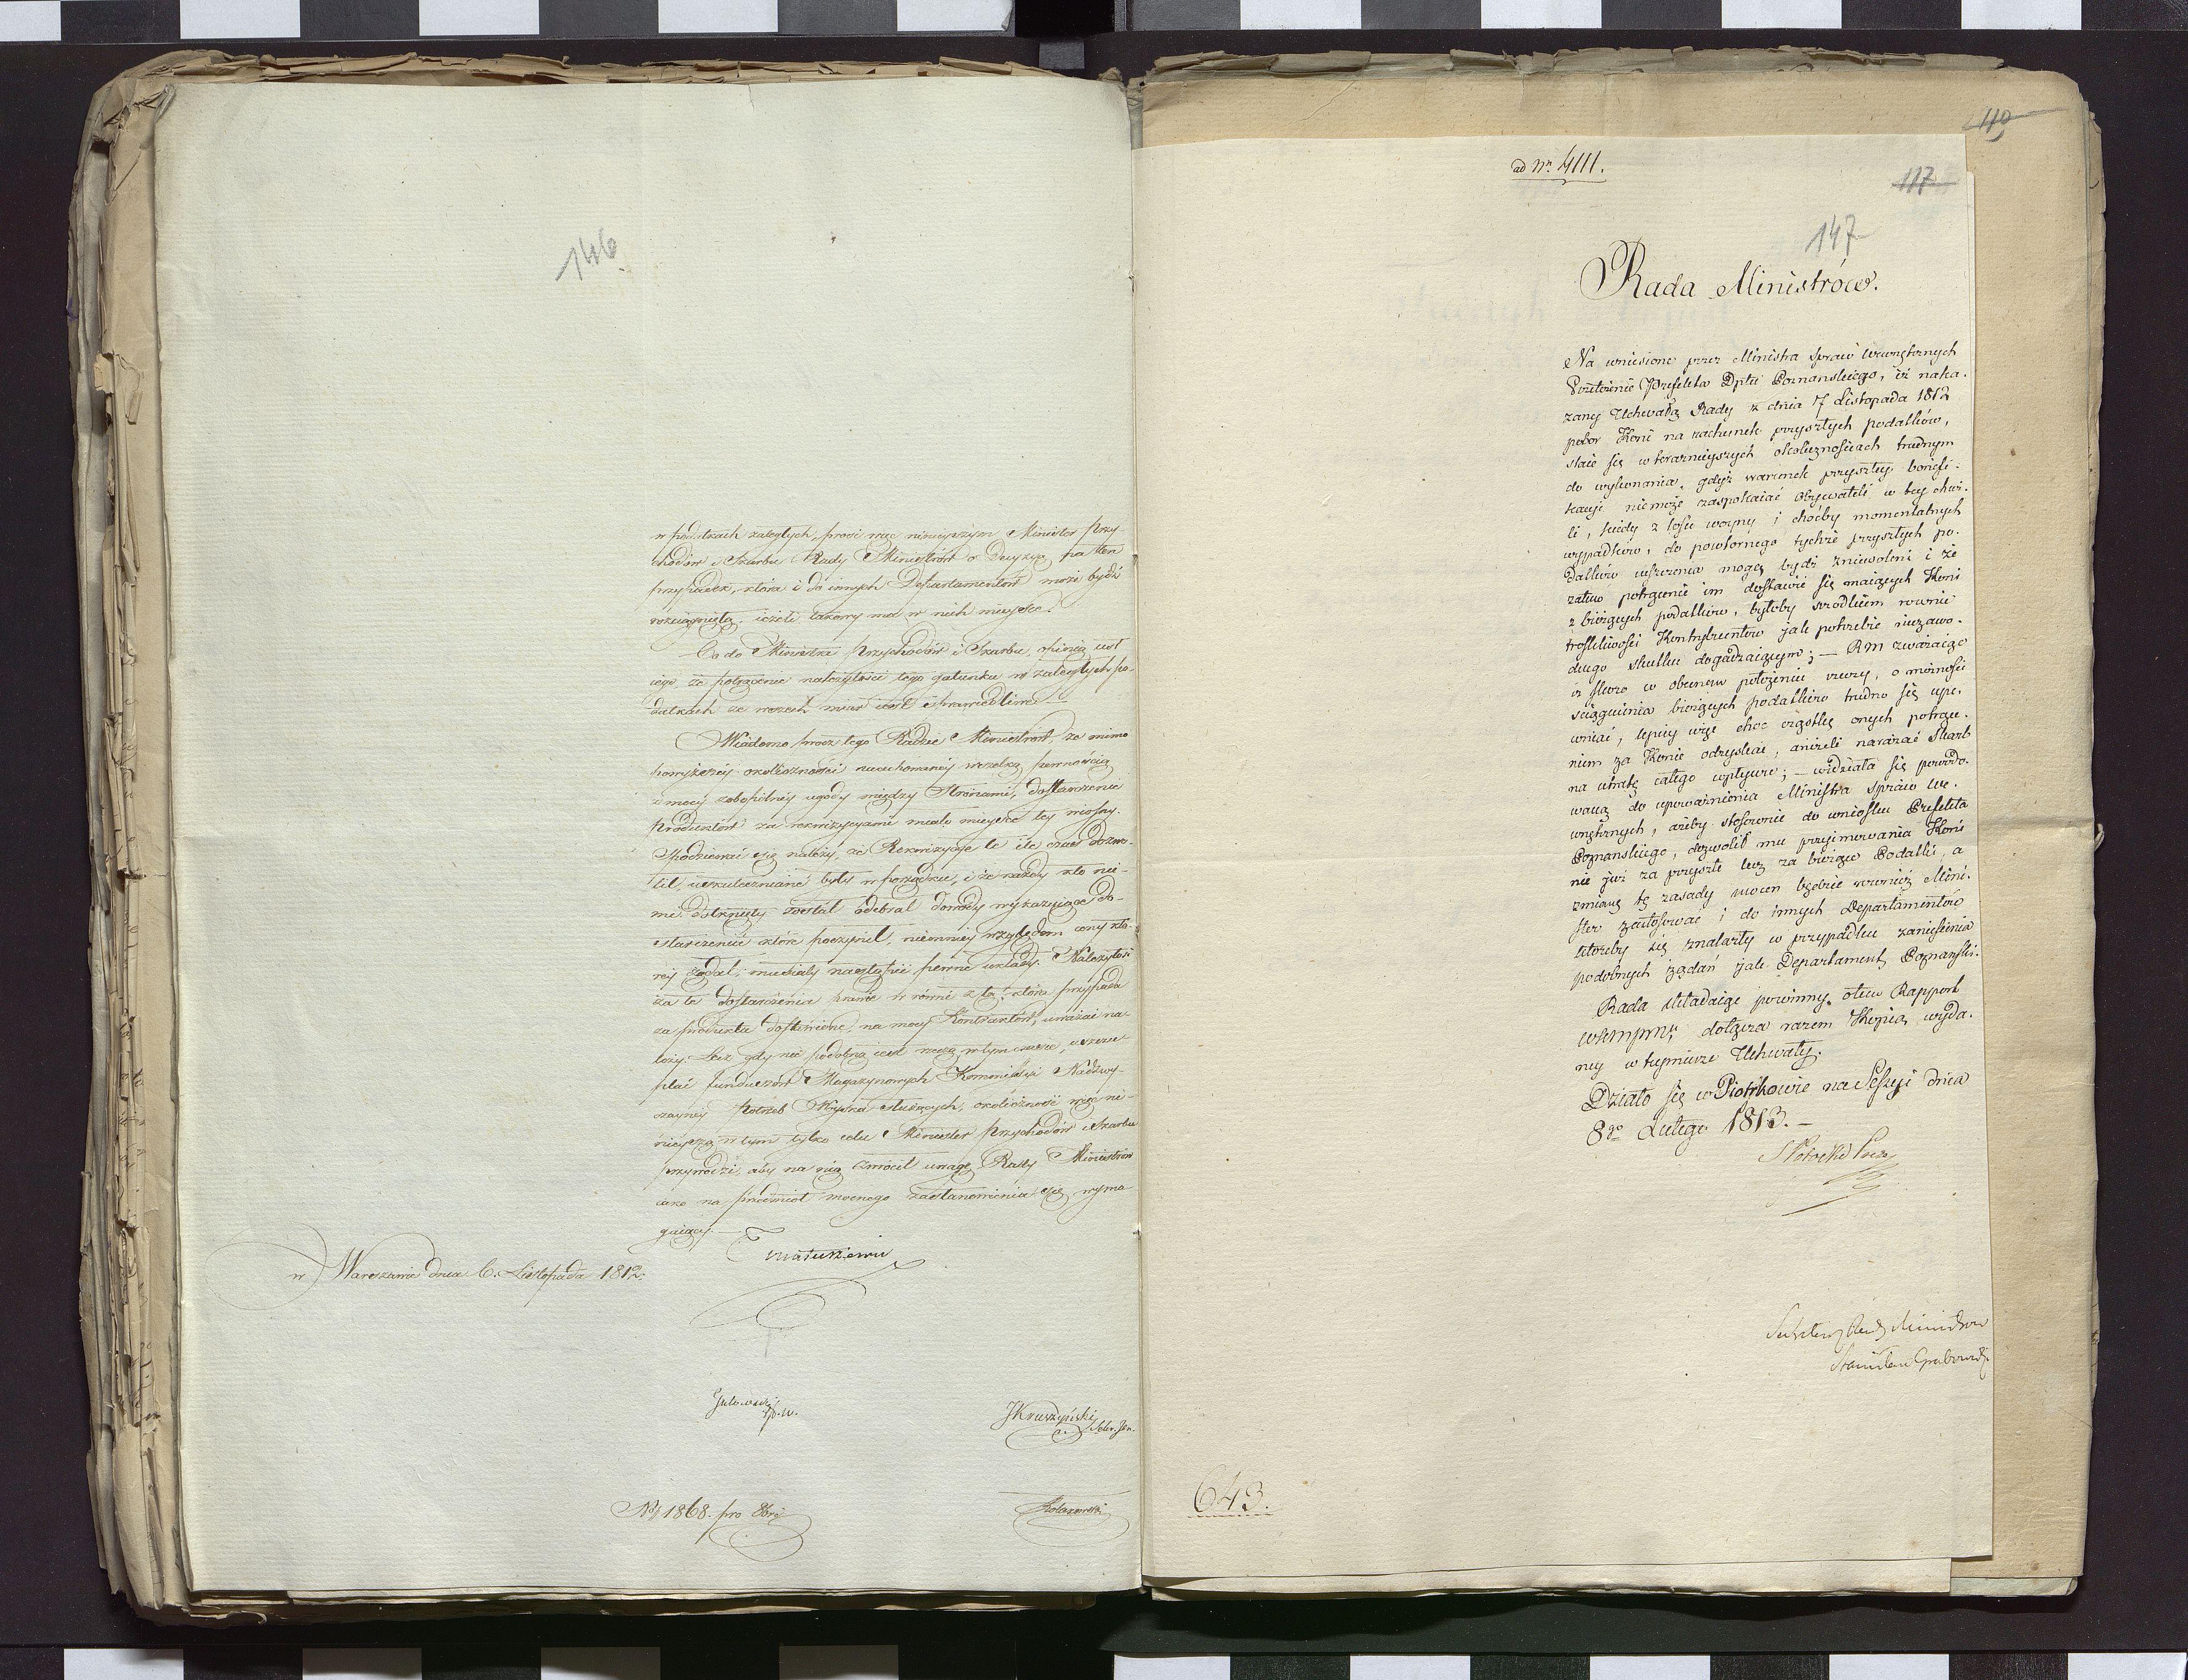 146
w podatkach zaległych, prosi więc nineyszym Minister Przy-
chodów i Skarbu Rady Ministrów o Decyzyą na ten
przypadek, która i do innych Departamentów może bydź
rozciągnięta, ieżeli takowy ma w nich mieysce.
Co do Ministra Przychodów i Skarbu, opinią iest
iego, że potrącenie należytości tego gatunku w zaległych po-
datkach ze wszech miar iest sprawiedliwe.
Wiadomo prócz tego Radzie Ministrów, że mimo
powyższey okoliczności nacechowaney wszelką pewnością
z mocy zobopólney ugody między Stronami, dostawienie
Produktów za rekwizycyami miało mieysce tey wiosny.
Spodziewać się należy, że Rekwizycye te ile czas dozwo-
lił, uskuteczniane były w porządku, i że każdy kto nie-
mi dotknięty został odebrał dowody wykazuiące do-
starczenie które poczynił, niemniey względem ceny któ-
rey żądał, musiały nastąpić pewne układy. Należytość
za te dostarczenia prawie w równi z tą, która przypada
za produkta dostawione na mocy Kontraktów, uważać na-
leży. Lecz gdy nie podobną iest rzeczą w tym czasie, uszczu-
plać funduszów Magazynowych Kommissyi Nadzwy-
czayney Potrzeb Woyska służących, okoliczność więc ni-
nieyszą w tym tylko celu Minister Przychodów i Skarbu
przywodzi, aby na nią zwrócił uwagę Rady Ministrów
iako na przedmiot mocnego zastanowienia się wyma-
gaiący.
T Matuszewic
w Warszawie dnia 6. Listopada 1812.
JKruszyński
Sekr. Jen.
No 1868. pro 8bri
110
ad Nr. 4111.
117
147
Rada Ministrów.
Na wniesione przez Ministra Spraw Wewnętrznych
Przełożenie Prefekta Dptu Poznańskiego, iż naka-
zany Uchwałą Rady z dnia 7 Listopada 1812
pobor Koni na rachunek przyszłych podatków,
staie się w teraznieyszych okolicznościach trudnym
do wykonania, gdyż warunek przyszłey bonifi-
kacyi nie może zaspokaiać Obywateli w tey chwi-
li, kiedy z losu woyny i choćby momentalnych
wypadków, do powtornego tychże przyszłych po-
datków uiszczenia mogą bydź zniewoleni i że
zatem potrącenie im dostawić się maiących Koni
z bieżących podatków, byłoby srodkiem rownie
troskliwości Kontrybuentów jak potrzebie niezawo-
dnego skutku dogadzaiącym; — RM zważaiąc
iż skoro w obecnem położeniu rzeczy, o możności
sciągnienia bieżących podatków trudno się upe-
wniać, lepiey więc choc cząstkę onych potrące-
niem za Konie odzyskać, aniżeli narażać Skarb
na utratę całego wpływu; — widziała się powodo-
waną do upoważnienia Ministra Spraw We-
wnętrznych, ażeby stosownie do wniosku Prefekta
Poznańskiego, dozwolił mu przyimowania Koni
nie już za przyszłe lecz za bieżące Podatki, a
zmianę tę zasady mocen będzie rownież Mini-
ster zastosować i do innych Departamentów
ktoreby się znalazły w przypadku zaniesienia
podobnych żądań jak Departament Poznański.
Rada składaiąc powinny o tem Rapport
WKMPMu, dołącza razem Kopią wyda-
ney w teymierze Uchwały.
Działo się w Piotrkowie na Sessyi dnia
8go Lutego 1813. —
SPotocki Prez
Sekretarz Rady Ministrow
Stanisław Grabowski
643.